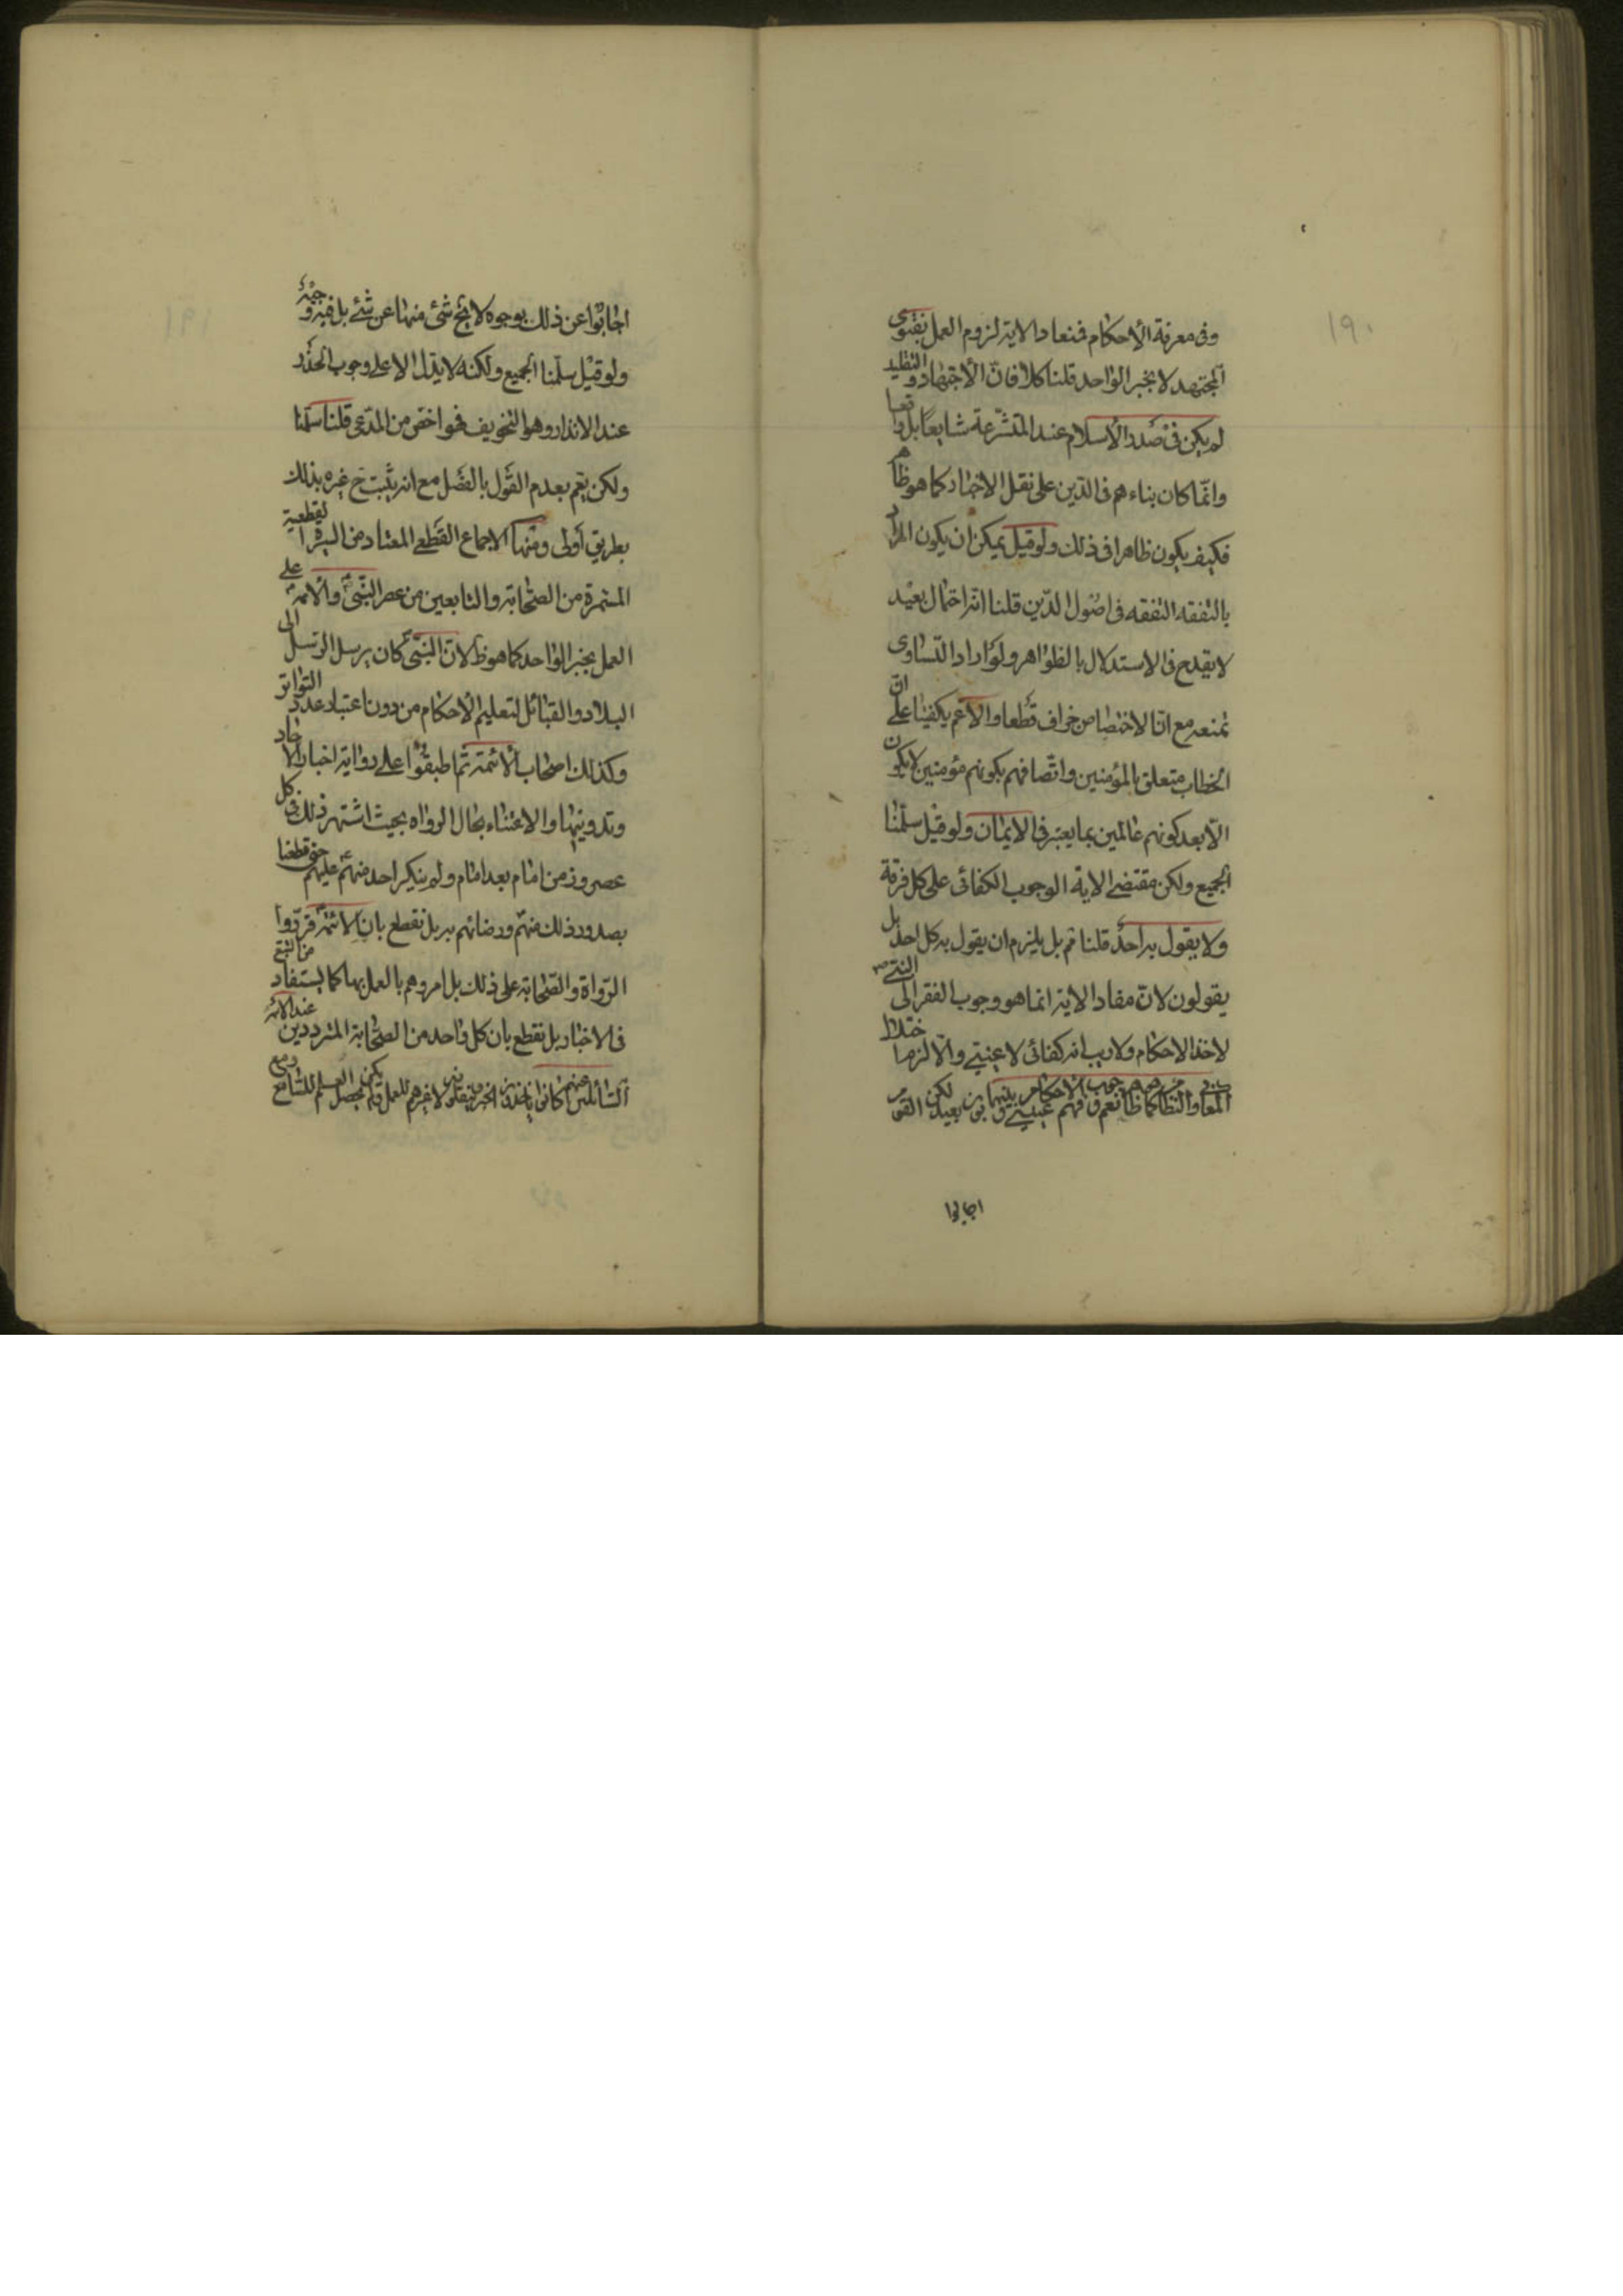 ١٩٠
وفى معرفة الأحكام فمفاد الاية لزوم العمل بفتوى
المجتهد لا بخبر الواحد قلنا كلا فانّ الأجتهاد والتقليد
لم يكن فى صدر الأسلام عند المتشرّعة شايعاً بل
وانّما كان بناءهم فى الدّين على نقل الاخبار كما هو ظاهر
فكيف يكون ظاهرا فى ذلك ولو قيل يمكن ان يكون المراد
بالتفقه التفقه فى اصول الدّين قلنا انّه احتمال بعيد
لا يقدح فى الاستدلال بالظواهر ولو اراد التساوى
نمنعه مع انّ الاختصاص خراف قطعا والأعم يكفينا على انّ
الخطاب متعلق بالمؤمنين واتّصافهم بكونهم مؤمنين لا يكون
الّا بعد كونهم عالمين بما يعتبر فى الايمان ولو قيل سلّمنا
الجميع ولكن مقتضى الاية الوجوب الكفائى على كل فرقة
ولا يقول به احد قلنا بل يلزم ان يقول به كل احد بل
يقولون لانّ مفاد الاية انما هو وجوب النفر الى النبى ص
لاخذ الاحكام ولا ريب انه كفائى لا عينى والّا لزم اختلال
المعاش والنظام كما نعم فهم الأحكام عينى وبينهما بون بعيد لكن القوم
اجابوا
١٩١
اجابوا عن ذلك بوجوه لا يخ شئ منها عن شئ بل
ولو قيل سلّمنا الجميع ولكنه لا يدل الا على وجوب الحذر
عند الانذار وهو التخويف فهو اخص من المدّعى قلنا سلّمنا
ولكن يتم بعدم القول بالفصل مع انه يثبت ح غيره بذلك
بطريق أولى ومنها الاجماع القطعى المعتاد من السيرة القطعية
المستمرة من الصّحابة والتابعين من عصر النّبى والأئمة على
العمل بخبر الواحد كما هو ظ لانّ النبىّ كان يرسل الرسل الى
البلاد والقبائل لتعليم الأحكام من دون اعتبار عدد التواتر
وكذلك اصحاب الأئمة طبقوا على رواية اخبار الاحاد
وتدوينها والاعتناء بحال الرواه بحيث اشتهر ذلك فى كل
عصر وزمن امام بعد امام ولم ينكر احد منهم عليهم حتى قطعنا
بصدور ذلك منهم ورضائهم به بل نقطع بان الائمة قرّروا
الرّواة والصّحابة على ذلك بل امروهم بالعمل بها كما يستفاد من التتبع
فى الاخبار بل نقطع بان كل واحد من الصّحابة المتردّدين عند الائمة
السّائلين عنهم كانوا ياخذون الخبر لا غيرهم للعمل ولم يكن يحصل العلم للسّامع